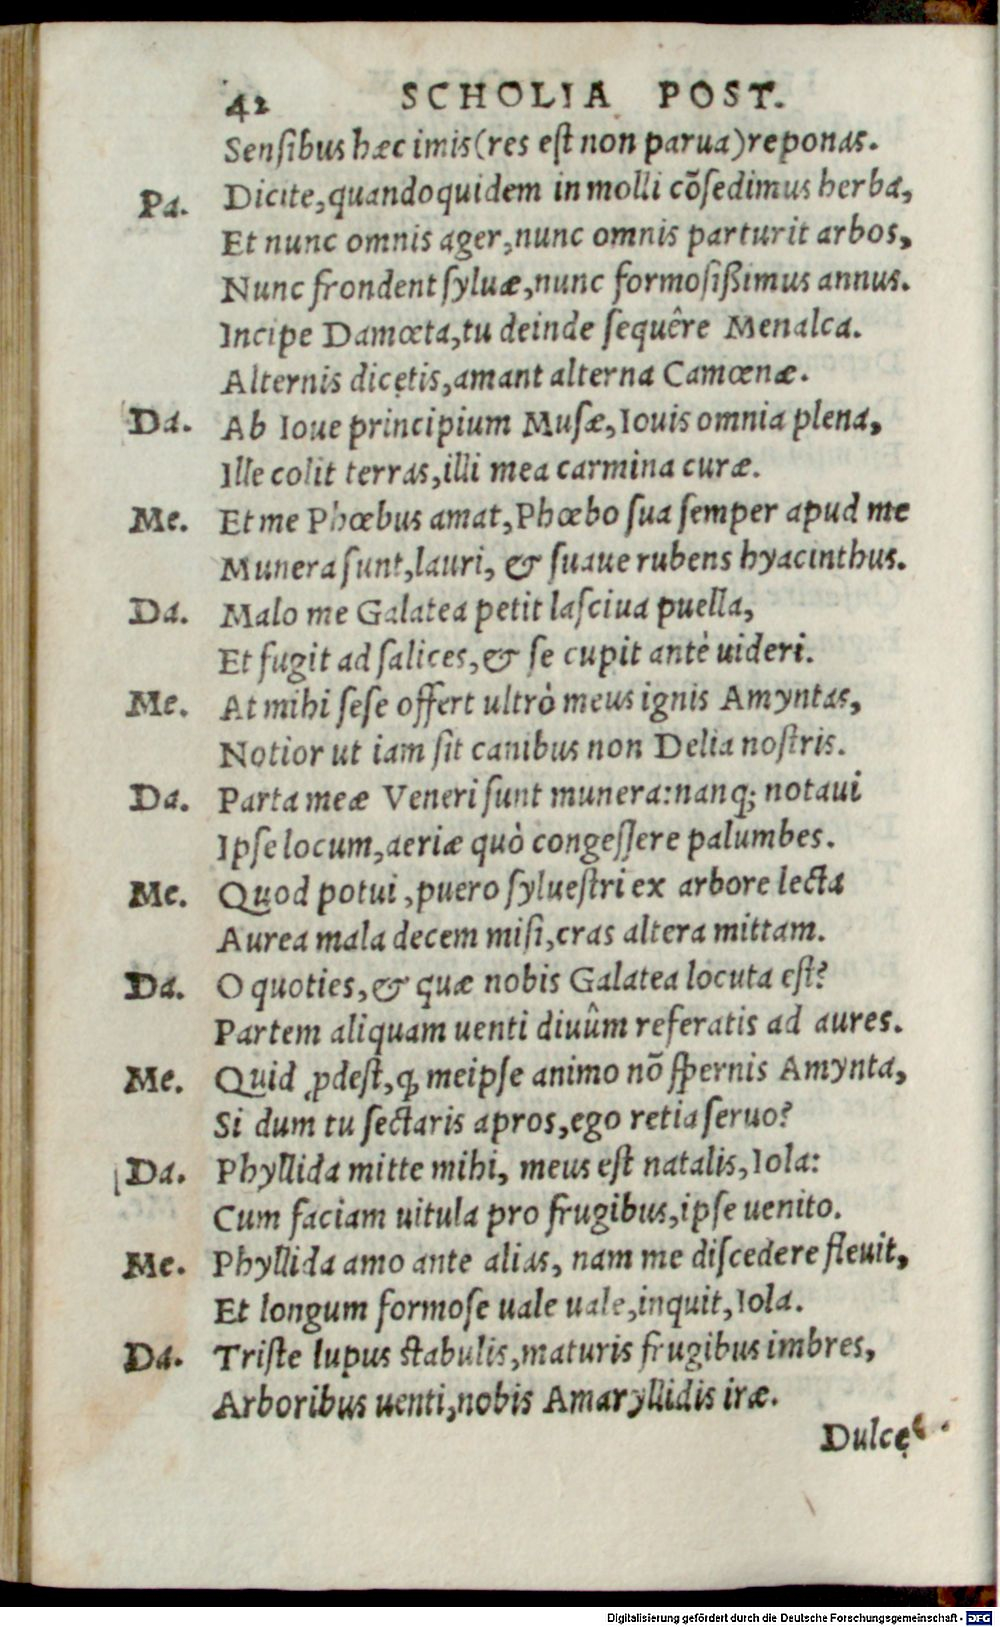 42 SCHOLIA POST.
Sensibus hæc imis (res est non parua) reponas.
Pa. Dicite, quandoquidem in molli cõsedimus herba,
Et nunc omnis ager, nunc omnis parturit arbos,
Nunc frondent syluæ, nunc formosißimus annus.
Incipe Damœta, tu deinde sequêre Menalca.
Alternis dicetis, amant alterna Camœnæ.
Da. Ab Ioue principium Musæ, Iouis omnia plena,
Ille colit terras, illi mea carmina curæ.
Me. Et me Phœbus amat, Phœbo sua semper apud me
Munera sunt, lauri, & suaue rubens hyacinthus.
Da. Malo me Galatea petit lasciua puella,
Et fugit ad salices, & se cupit antè uideri.
Me. At mihi sese offert ultrò meus ignis Amyntas,
Notior ut iam sit canibus non Delia nostris.
Da. Parta meæ Veneri sunt munera: nanq; notaui
Ipse locum, aeriæ quò congessere palumbes.
Me. Quod potui, puero syluestri ex arbore lecta
Aurea mala decem misi, cras altera mittam.
Da. O quoties, & quæ nobis Galatea locuta est?
Partem aliquam uenti diuûm referatis ad aures.
Me. Quid ꝓdest, ꝙ me ipse animo nõ spernis Amynta,
Si dum tu sectaris apros, ego retia seruo?
Da. Phyllida mitte mihi, meus est natalis, Iola:
Cum faciam uitula pro frugibus, ipse uenito.
Me. Phyllida amo ante alias, nam me discedere fleuit,
Et longum formose uale uale, inquit, Iola.
Da. Triste lupus stabulis, maturis frugibus imbres,
Arboribus uenti, nobis Amaryllidis iræ.
Dulce
Digitalisierung gefördert durch die Deutsche Forschungsgemeinschaft - DFG